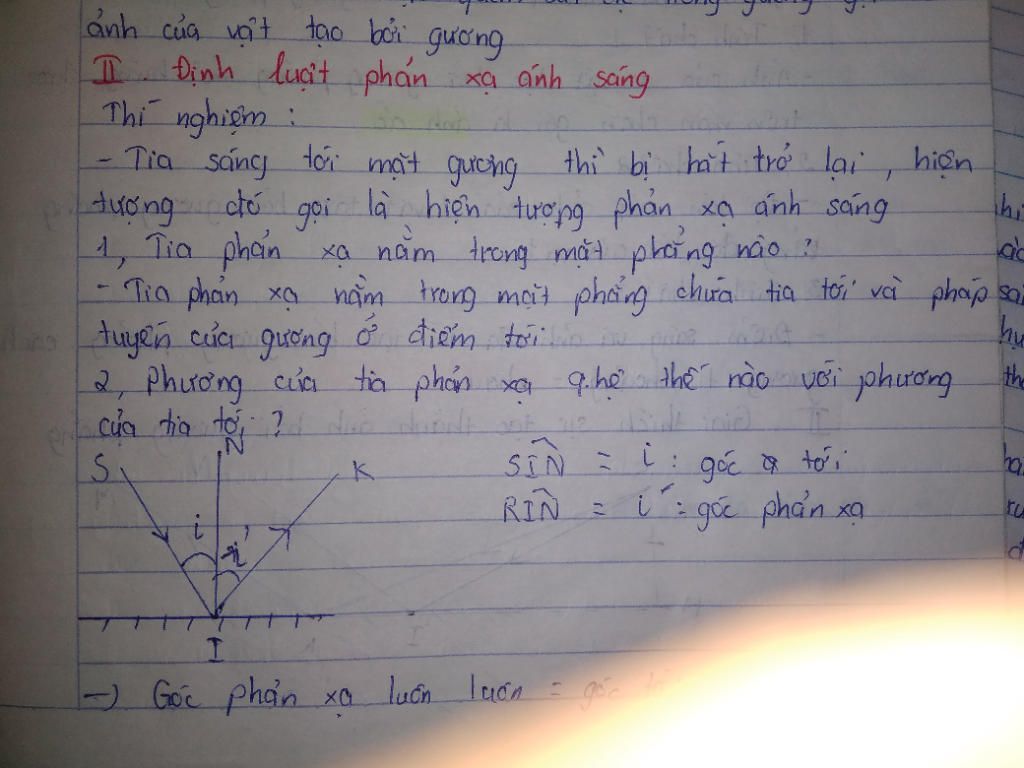 ảnh của vật tạo bởi gương
II Định luật phản xạ ánh sáng
Thí nghiệm :
- Tia sáng tới mặt gương thì bị hắt trở lại , hiện
tượng đó gọi là hiện tượng phản xạ ánh sáng
1, Tia phản xạ nằm trong mặt phẳng nào ?
- Tia phản xạ nằm trong mặt phẳng chứa tia tới và pháp
tuyến của gương ở điểm tới
2, Phương của tia phản xạ q.hệ thế nào với phương
của tia tới ?
S N K
i i'
I
SIN = i : góc tới
RIN = i' : góc phản xạ
-> Góc phản xạ luôn luôn = góc